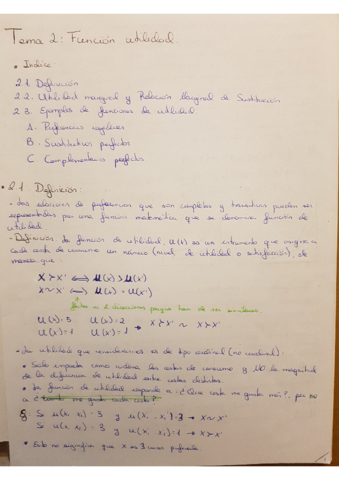 Tema 2: Función utilidad.
• Indice:
2.1. Definición
2.2. Utilidad marginal y Relación Marginal de Sustitución
2.3. Ejemplos de funciones de utilidad
A. Preferencias regulares
B. Sustitutivos perfectos
C Complementarios perfectos
• 2.1 Definición:
• Las relaciones de preferencias que son completas y transitivas pueden ser
representadas por una función matemática que se denomina función de
utilidad.
• Definición de función de utilidad, U(x) es un instrumento que asigna a
cada cesta de consumo un número (nivel de utilidad o satisfacción), de
manera que:
X ≻ X' ⟺ U(x) > U(x')
X ~ X' ⟺ U(x) = U(x')
U(x)=5 U(x)=2
U(x')=1 U(x')=1 → X ≻ X' ~ X ≻ X'
• La utilidad que consideramos es de tipo ordinal (no cardinal):
• Solo importa como ordena las cestas de consumo y NO la magnitud
de la diferencia de utilidad entre cestas distintas.
• La función de utilidad responde a: ¿Qué cesta me gusta más?, pero no
a ¿cuánto me gusta cada cesta?
Si u(x, x) = 3 y u(x, x) = 3 → X ~ X'
Si u(x, x) = 3 y u(x, x) = 1 → X ≻ X'
• Esto no significa que X es 3 veces preferida.